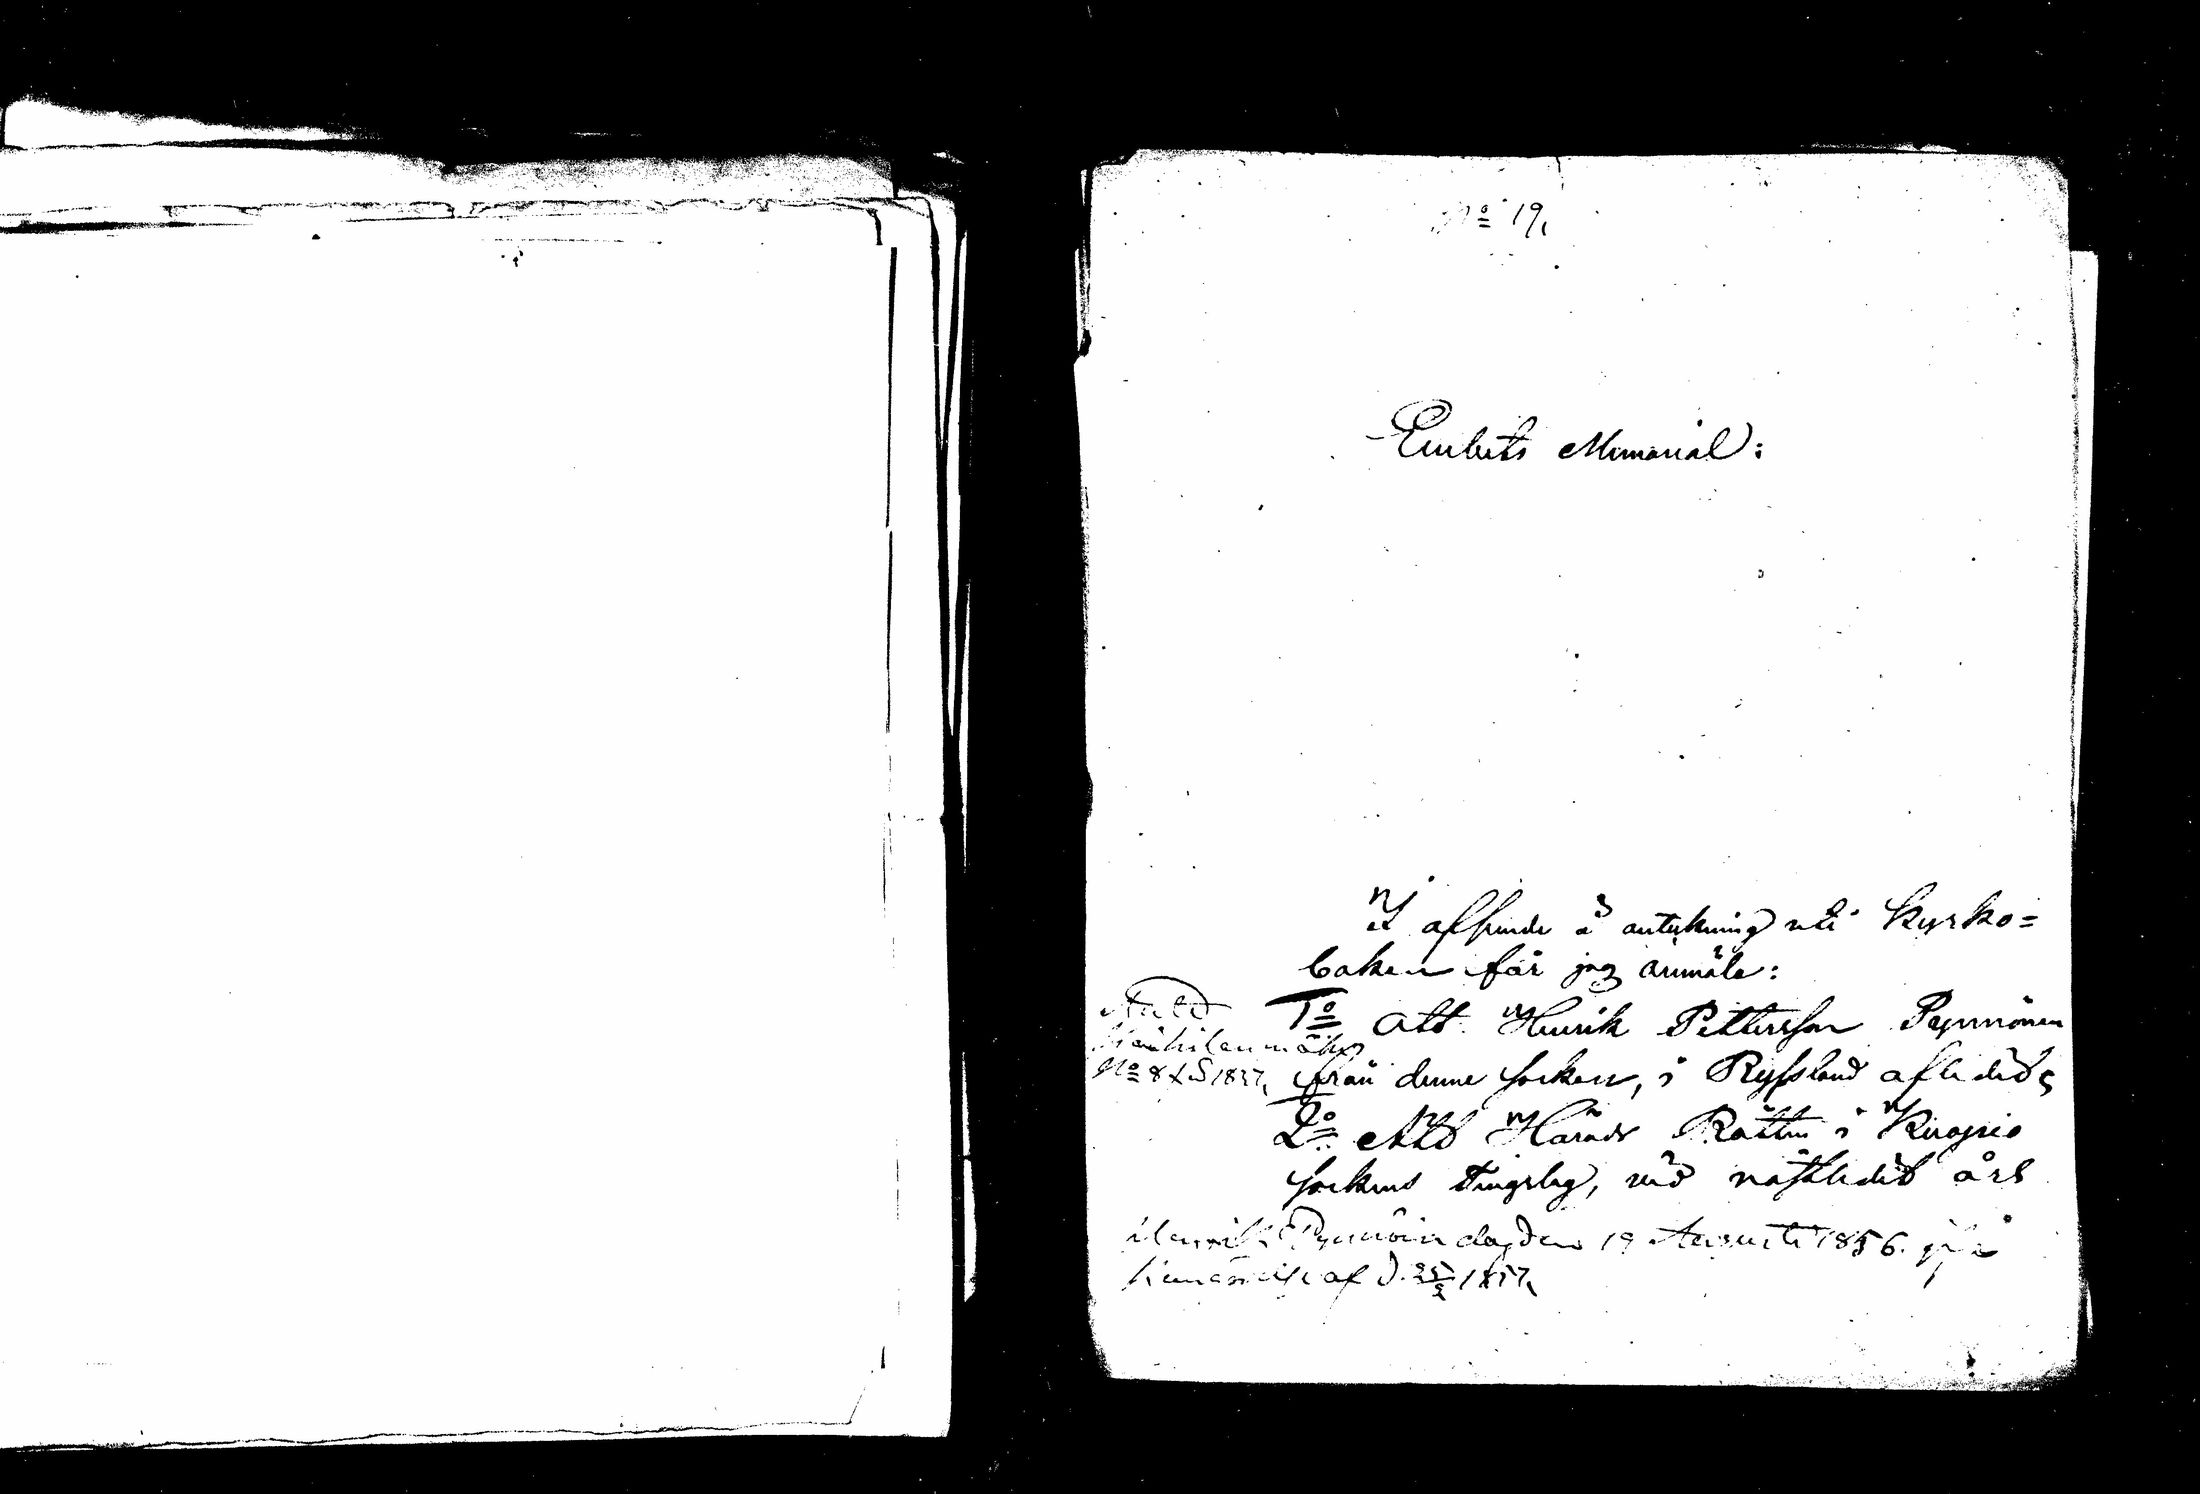 No 19,
Embets Memorial:
I afseende å anteckning uti Kyrko=
boken får jag anmäla:
1o Att Henrik Pettersson Pynnönen
från denne socken, i Ryssland aflidit;
2o Att Härads Rätten i Kuopio
sockens tingslag, vid nästledit års
No 8 1857,
Henrik Pynnöin dog den 19 Augusti 1856. på
af d. 25/3 1857,